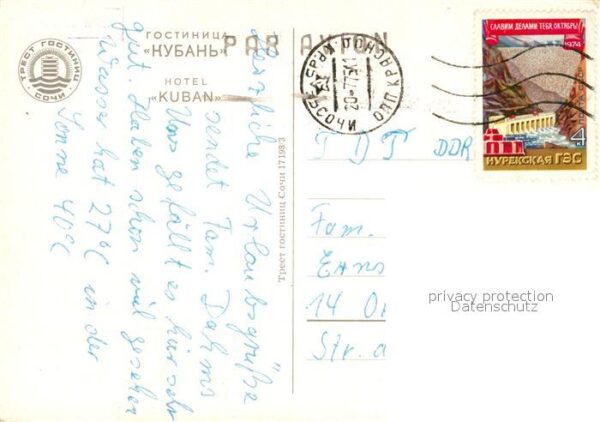 ГОСТИНИЦА
"КУБАНЬ"
HOTEL
"KUBAN"
PAR AVION
ТРЕСТ ГОСТИНИЦ
СОЧИ
Herzliche Urlaubsgrüße
sendet Fam. Dahms
Uns gefällt es hier sehr
gut. Haben schon viel gesehen
Wasser hat 27°C in der
Sonne 40°C
Трест гостиниц Сочи 17198/3
СОЧИ
КРАСНОД.
20-7-75
СЛАВИМ ДЕЛАМИ ТЕБЯ, ОКТЯБРЬ!
1974
4
НУРЕКСКАЯ ГЭС
DDR
Fam.
14
Str.
privacy protection
Datenschutz